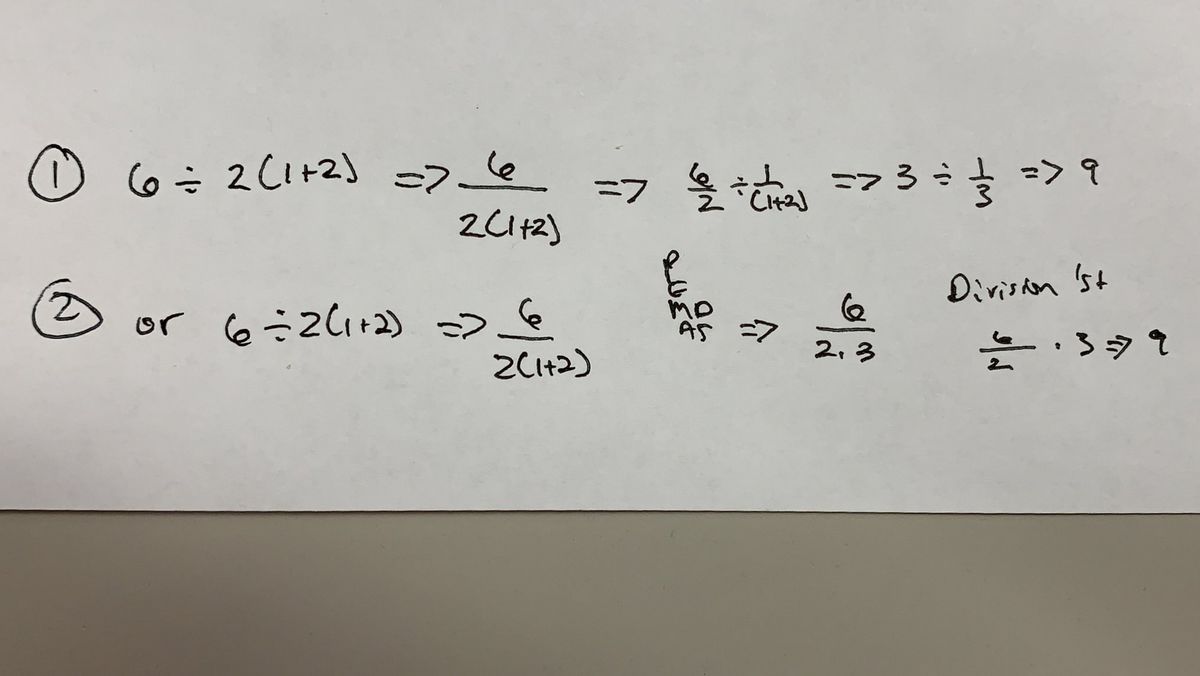 ① 6 ÷ 2(1+2) => 6/2(1+2) => 6/2 ÷ 1/(1+2) => 3 ÷ 1/3 => 9
② or 6÷2(1+2) => 6/2(1+2)
P
E
MD
AS => 6/2.3
Division 1st
6/2 . 3 => 9